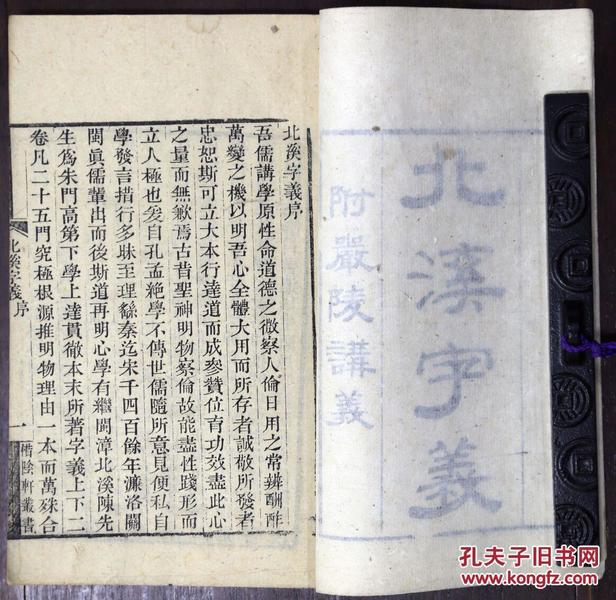 北溪字義
附嚴陵講義
北溪字義序
吾儒講學原性命道德之微察人倫日用之常辨酬酢
萬變之機以明吾心全體大用而所存者誠敬所發者
忠恕斯可立大本行達道而成參贊位育功效盡此心
之量而無歉焉古昔聖神明物察倫故能盡性踐形而
立人極也爰自孔孟絶學不傳世儒隨所意見便私自
學發言措行多昧至理繇秦迄宋千四百餘年濂洛關
閩眞儒輩出而後斯道再明心學有繼閩漳北溪陳先
生爲朱門高第下學上達貫徹本末所著字義上下二
卷凡二十五門究極根源推明物理由一本而萬殊合
北溪字義 序
一
惜陰軒叢書
孔夫子旧书网
www.kongfz.com